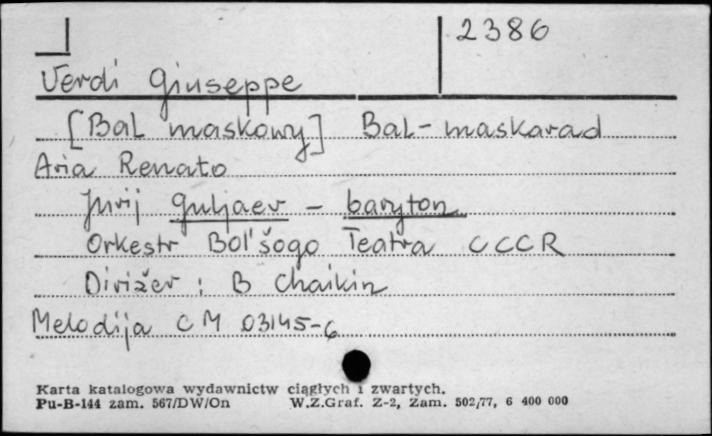 2386
Verdi Giuseppe
[Bal maskowy] Bal-maskarad
Aria Renato
Jurij Guljaev - baryton
Orkestr Bol'šogo Teatra CCCR
Dirižer: B Chaikin
Melodija CM 03145-6
Karta katalogowa wydawnictw ciągłych i zwartych.
Pu-B-144 zam. 567/DW/On W.Z.Graf. Z-2, Zam. 502/77, 6 400 000